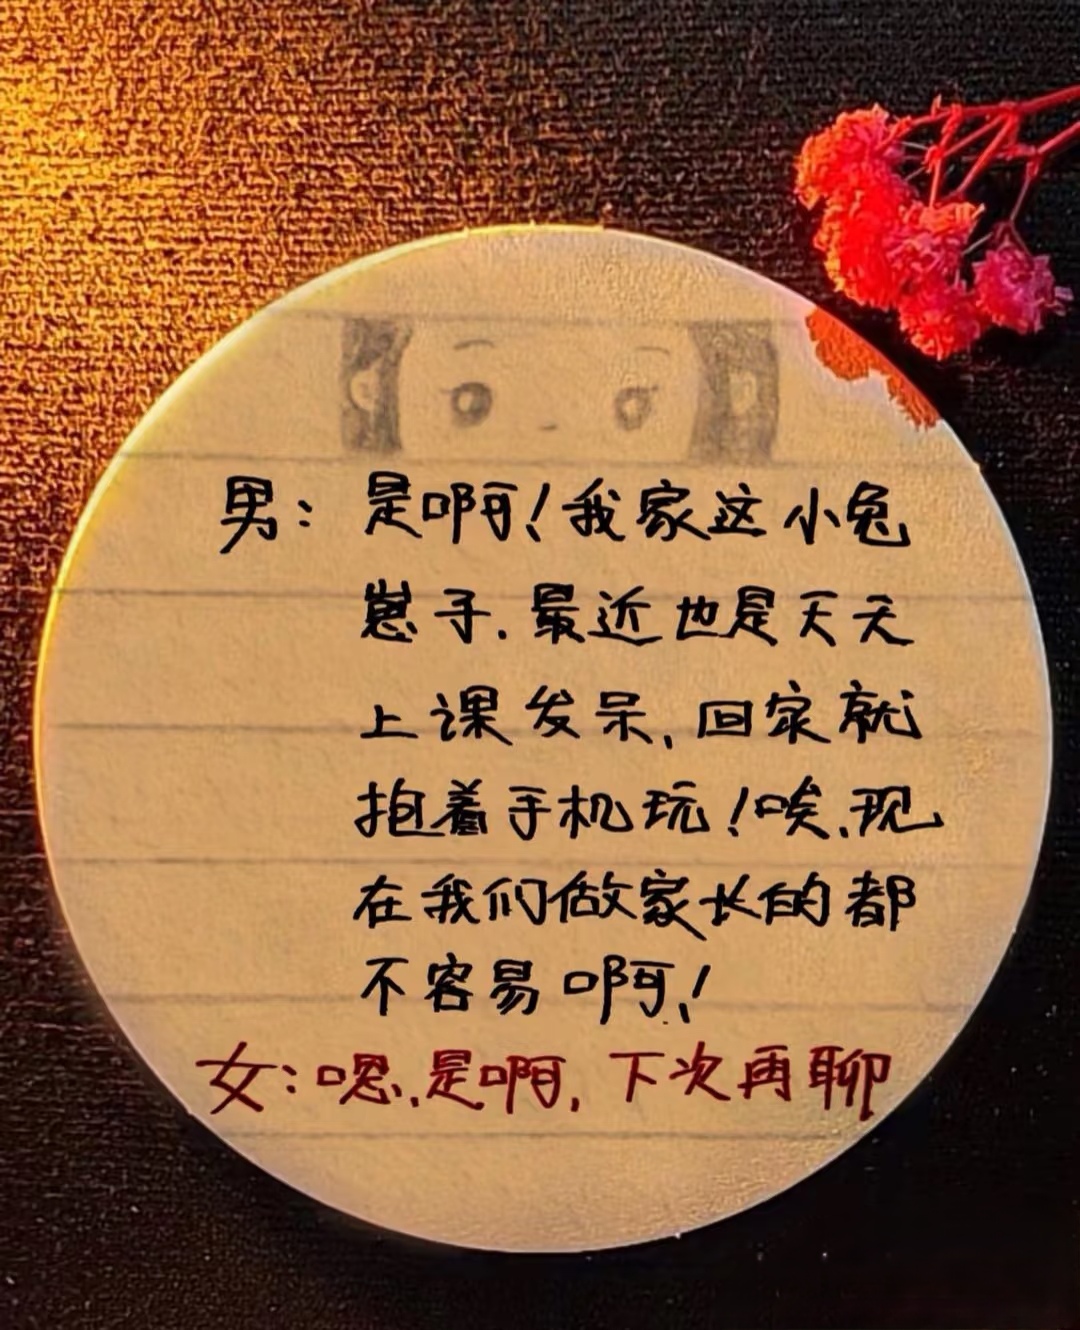 男：是啊！我家这小兔
崽子.最近也是天天
上课发呆,回家就
抱着手机玩！唉.现
在我们做家长的都
不容易啊！
女：嗯.是啊,下次再聊